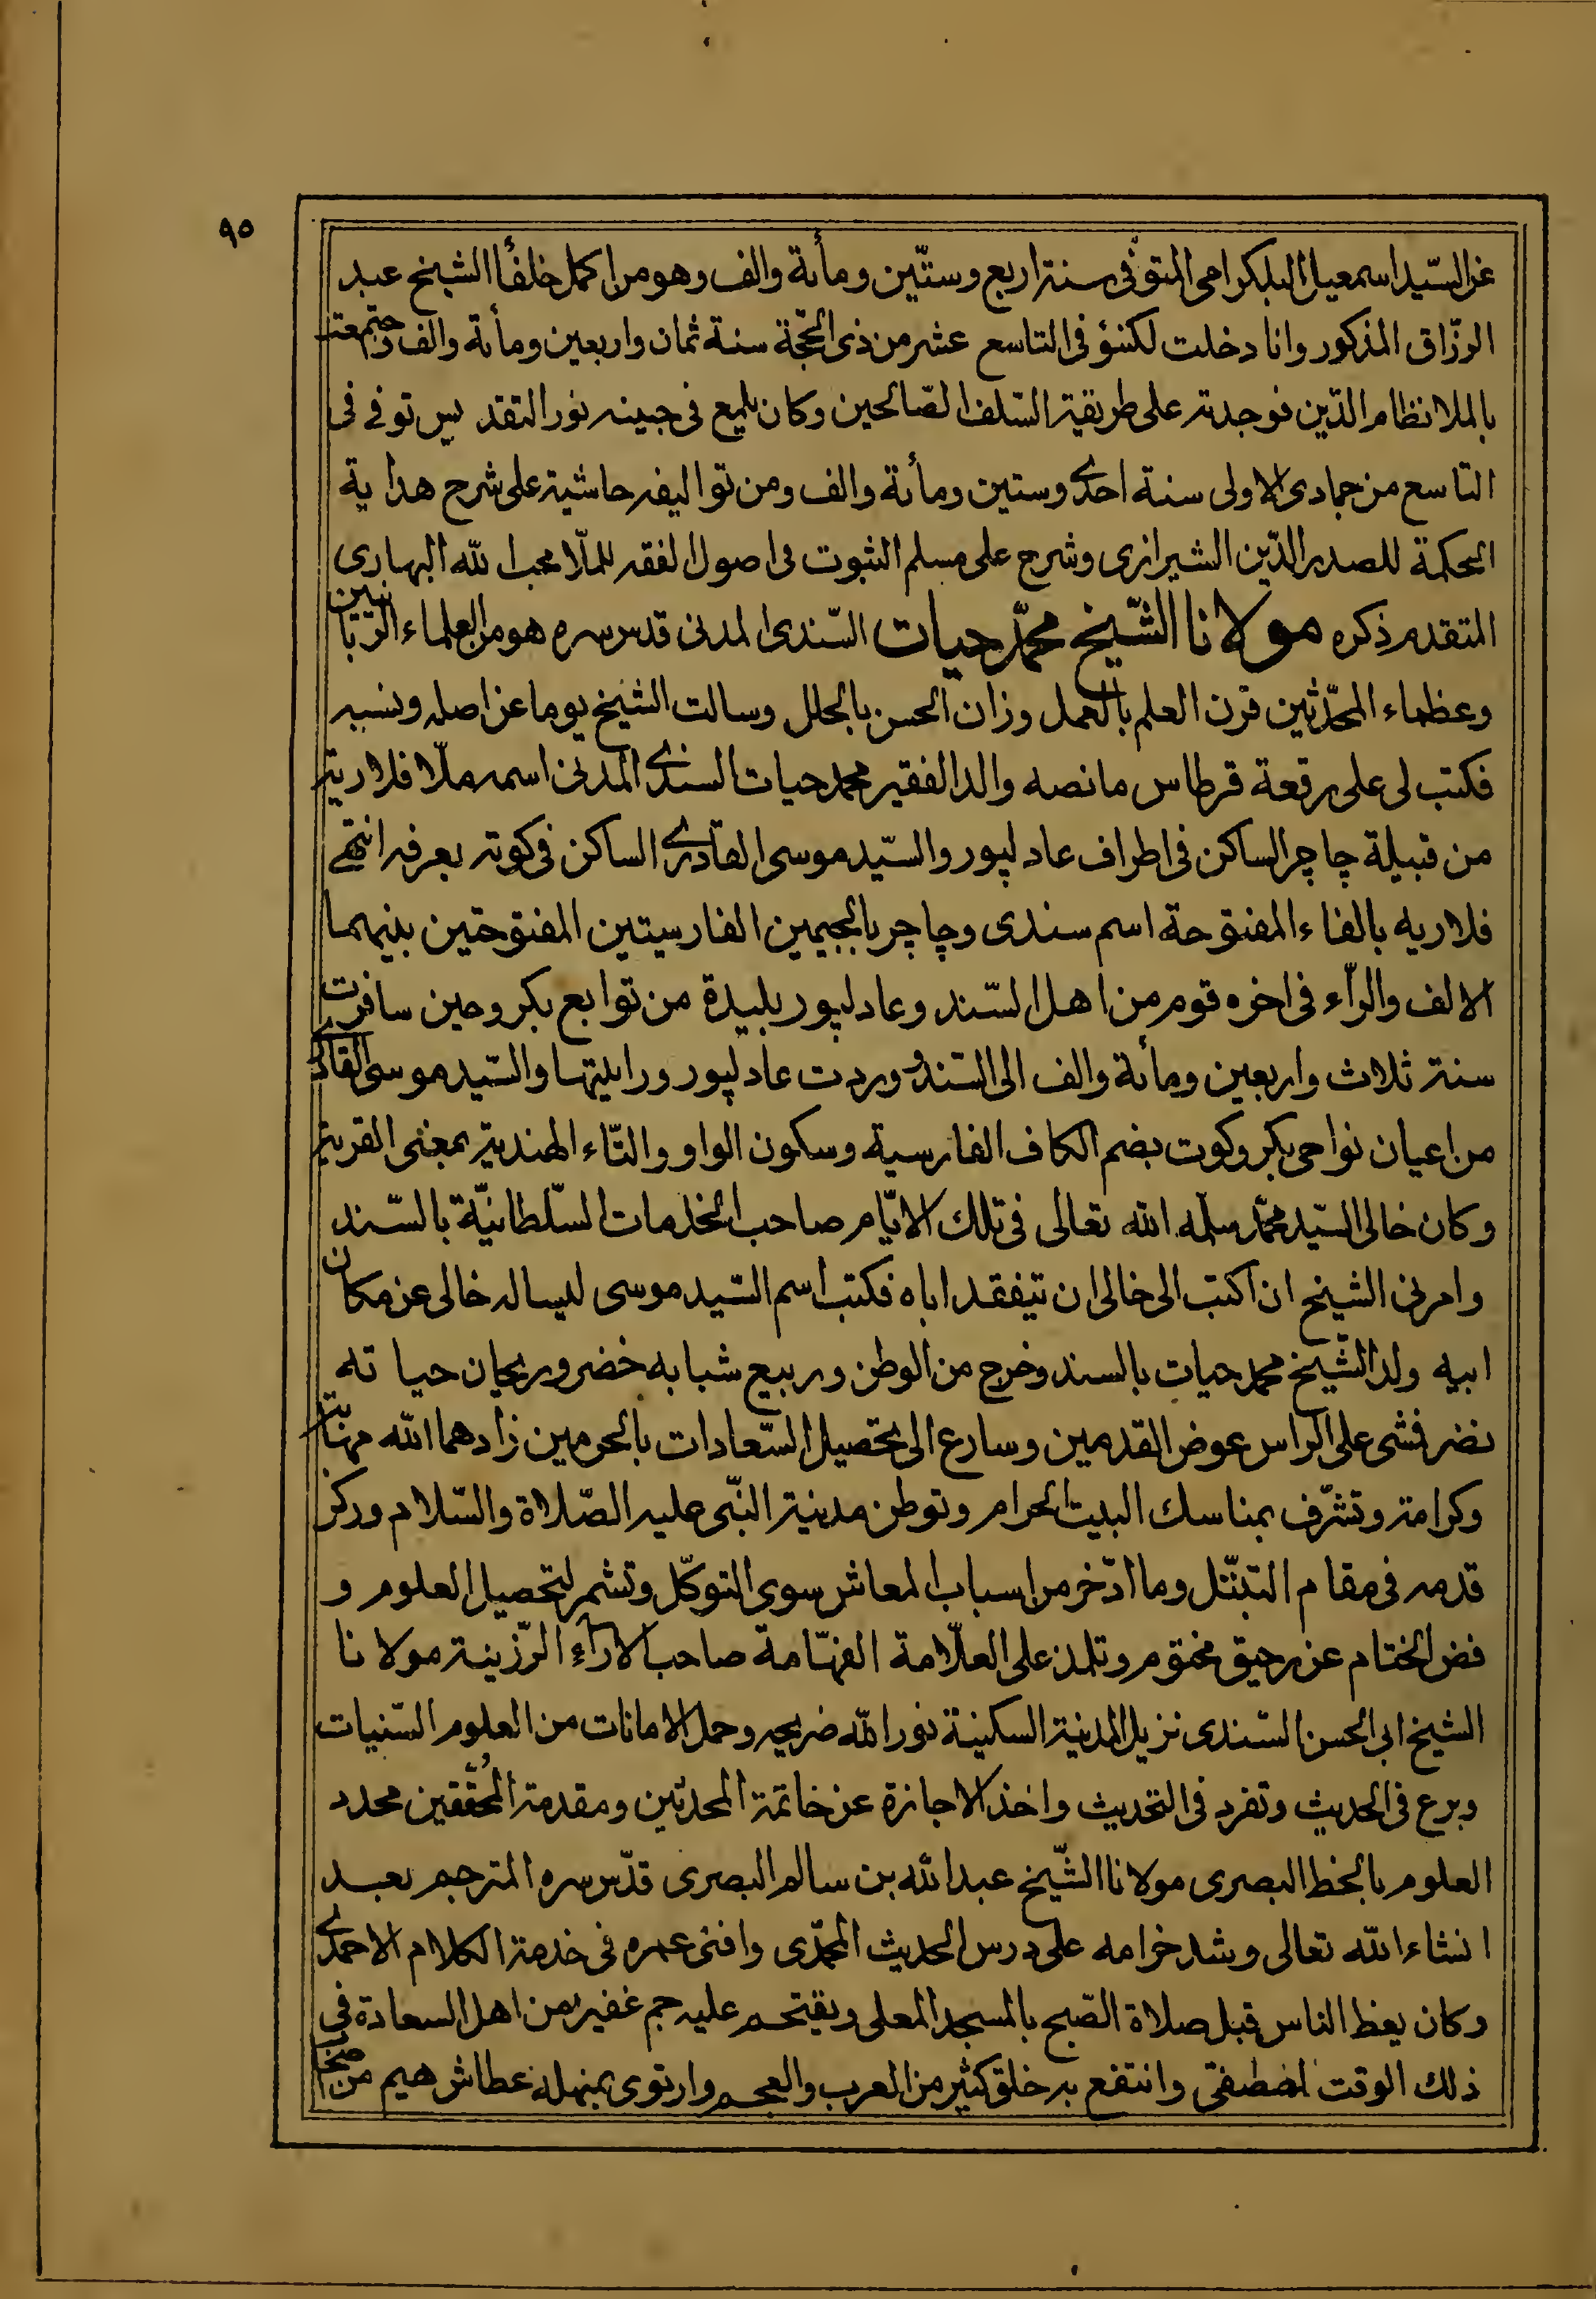 ٩٥
عن السّيد اسمعيل البلكرامى المتوفّى سنة اربع وستّين ومأية والف وهو من اكمل خلفاً الشيخ عبد
الرزّاق المذكور وانا دخلت لكنؤ فى التاسع عشر من ذى الحجّة سنة ثمان واربعين ومأية والف واجتمعت
بالملا نظام الدّين فوجدته على طريقة السّلف الصّالحين وكان يلمع فى جبينه نور التقديس توفے فى
التاسع من جمادى الاولى سنة احدے وستين ومأية والف ومن تواليفه حاشية على شرح هداية
الحكمة للصدر الدّين الشيرازى وشرح على مسلم الثبوت فى اصول الفقه للملّا محب الله البهارى
المتقدم ذكره مولانا الشّيخ محمّد حيات السّندى المدنى قدس سره هو من العلماء الربّانيين
وعظماء المحدّثين قرن العلم بالعمل وزان الحسن بالحلل وسالت الشيخ يوما عن اصله ونسبه
فكتب لى على رقعة قرطاس ما نصه والد الفقير محمد حيات السندے المدنى اسمه ملّا فلاريه
من قبيلة چاچر الساكن فى اطراف عادلپور والسّيد موسى القادرے الساكن فى كوته يعرفه انتهے
فلاريه بالفاء المفتوحة اسم سندى وچاچر بالجيمين الفارسيتين المفتوحتين بينهما
الالف والرّاء فى اخره قوم من اهل السّند وعادلپور بليدة من توابع بكر وحين سافرت
سنة ثلاث واربعين ومأية والف الى السّند ووردت عادلپور ورايتها والسّيد موسى القادرے
من اعيان نواحى بكر وكوت بضم الكاف الفارسية وسكون الواو والتّاء الهندية بمعنى القرية
وكان خالى السّيد محمّد سلمه الله تعالى فى تلك الايّام صاحب الخدمات السّلطانيّة بالسّند
وامرنى الشيخ ان اكتب الى خالى ان يتفقد اباه فكتب اسم السّيد موسى ليساله خالى عن مكان
ابيه ولد الشّيخ محمد حيات بالسند وخرج من الوطن وربيع شبابه خضر وريحان حياته
نضر فمشى على الراس عوض القدمين وسارع الى تحصيل السّعادات بالحرمين زادهما الله مهابة
وكرامة وتشرّف بمناسك البيت الحرام وتوطن مدينة النّبى عليه الصّلاة والسّلام وركز
قدمه فى مقام التبتّل وما ادّخر من اسباب المعاش سوى التوكّل وتشمر لتحصيل العلوم و
فض الختام عن رحيق مختوم وتلمذ على العلّامة الفهّامة صاحب الاراء الرّزينة مولانا
الشيخ ابى الحسن السّندى نزيل المدينة السكينة نور الله ضريحه وحمل الامانات من العلوم السّنيات
وبرع فى الحديث وتفرد فى التحديث واخذ الاجازة عن خاتمة المحدثين ومقدمة المحقّقين محدد
العلوم بالخط البصرى مولانا الشّيخ عبد الله بن سالم البصرى قدّس سره المترجم بعد
انشاء الله تعالى وشد خزامه على درس الحديث المحمّدى وافنى عمره فى خدمة الكلام الاحمدے
وكان يعظ الناس قبل صلاة الصّبح بالمسجد المعلى ويقتحم عليه جم غفير من اهل السعادة فى
ذلك الوقت وانتفع به خلق كثير من العرب والعجم وارتوى بمنهله عطاش هيم من